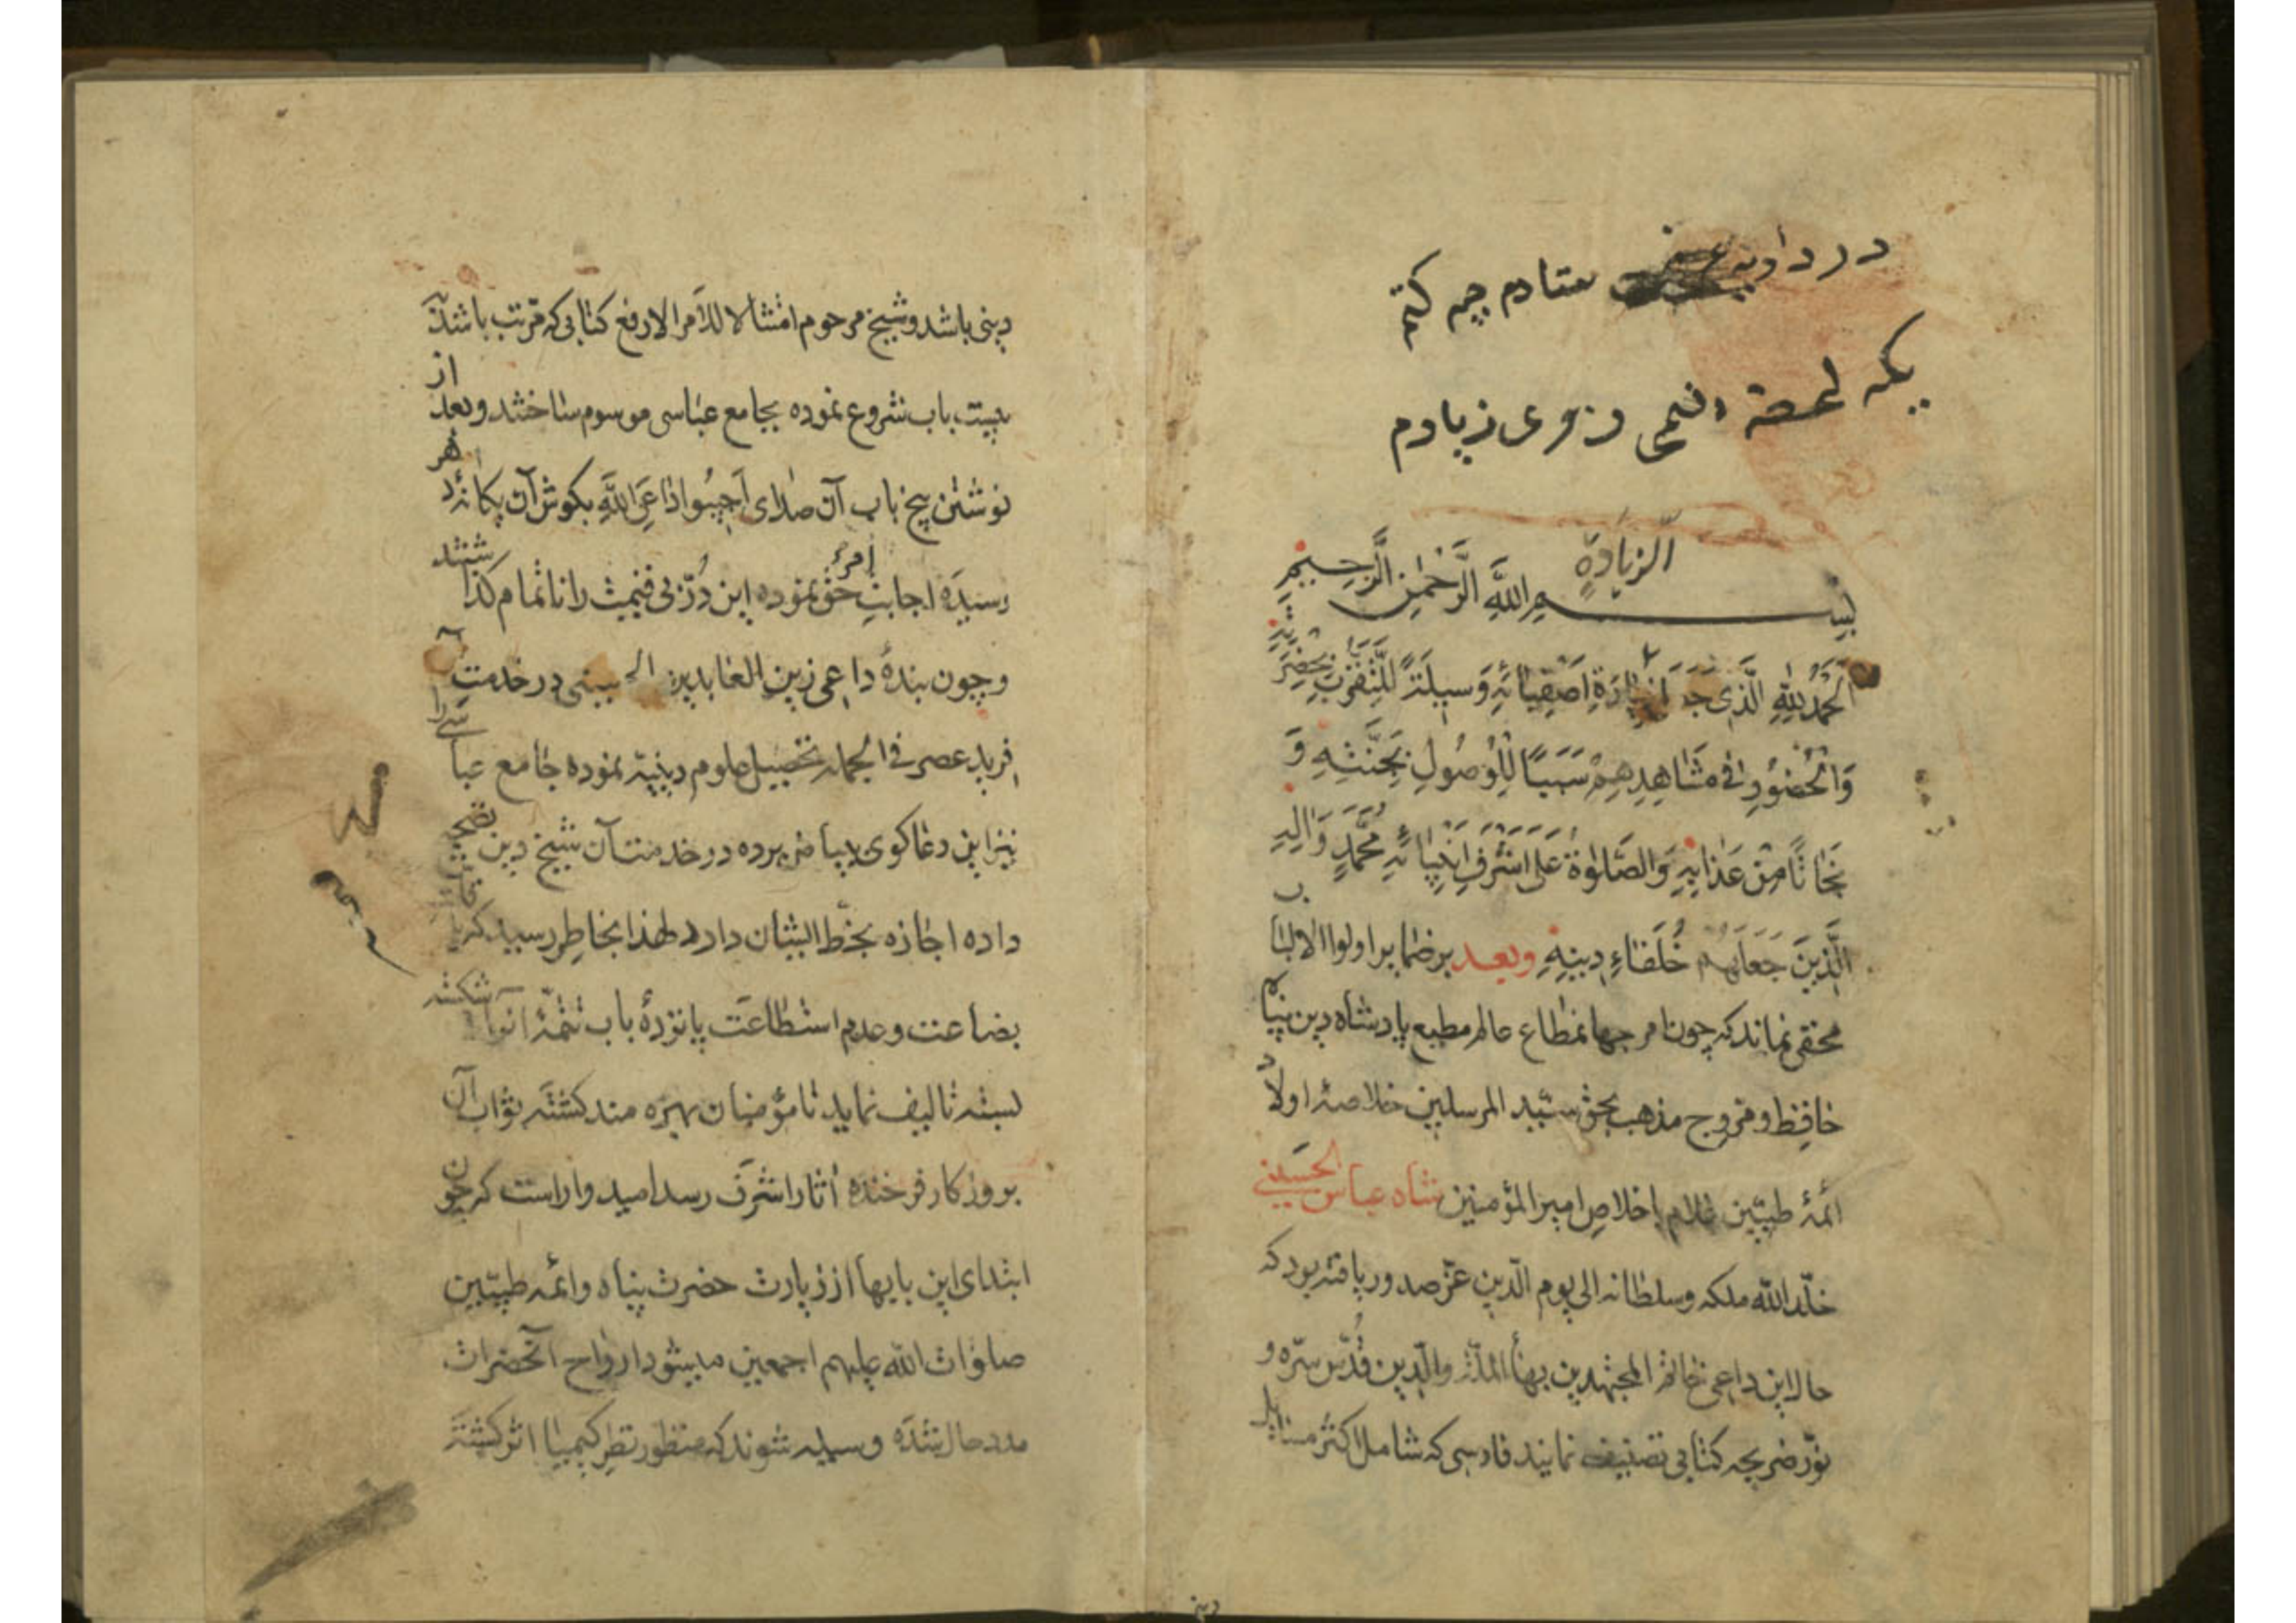 ستادم چه کنم
یکه
الزیاده
بسم الله الرحمن الرحیم
اَلحَمدُ لِلّهِ الَّذی زیارَةِ اَصفِیائِهِ وَسیلَةً لِلتَّقَرُّبِ بِحَضرَتِهِ
وَالحُضُورِ فی مَشاهِدِهِم سَبَبًا لِلوُصُولِ بِجَنَّتِهِ وَ
نَجاتًا مِن عَذابِهِ وَالصَّلوةُ عَلی اَشرَفِ اَنبِیائِهِ مُحَمَّدٍ وَالِهِ
الَّذینَ جَعَلَهُم خُلَفاءِ دینِهِ وبعد بر ضمایر اولوا الالباب
مخفی نماند که چون امر جهانمطاع عالم مطیع پادشاه دین پناه
حافظ و مروج مذهب بحق سید المرسلین خلاصهٔ اولاد
ائمهٔ طیبین غلام باخلاص امیر المؤمنین شاه عباس الحسینی
خلد الله ملکه وسلطانه الی یوم الدین عز صدور یافته بود که
خاتم المجتهدین بهاء الملة والدین قدس سره و
نور ضریحه کتابی تصنیف نمایند فارسی که شامل اکثر مسایل
دینی
دینی باشد و شیخ مرحوم امتثالا للامر الارفع کتابی که مرتب باشد
بیست باب شروع نموده بجامع عباسی موسوم ساختند و بعد از
نوشتن پنج باب آن صلای اجیبوا داعی الله بکوش آن یکانهٔ دهر
رسیده اجابت امر حق نموده این در بی قیمت را ناتمام کذاشتند
و چون بندهٔ داعی زین العابدین الحسینی در خدمت آن
فرید عصر فی الجمله تحصیل علوم دینیه نموده جامع عباسی را
نیز این دعاکوی در خدمت آن شیخ دین
داده اجازه بخط ایشان دارد لهذا بخاطر رسید که با
بضاعت و عدم استطاعت پانزدهٔ باب تتمهٔ شکسته
بسته تالیف نماید تا مؤمنان بهره مند کشته ثواب آن
بروزکار فرخنده اثار اشرف رسد امید واراست که چون
ابتدای این بابها از زیارت حضرت پناه وائمه طیبین
صلوات الله علیهم اجمعین میشود ارواح آنحضرات
مدد حال شده وسیله شوند که منظور نظر کیمیا اثر کشته